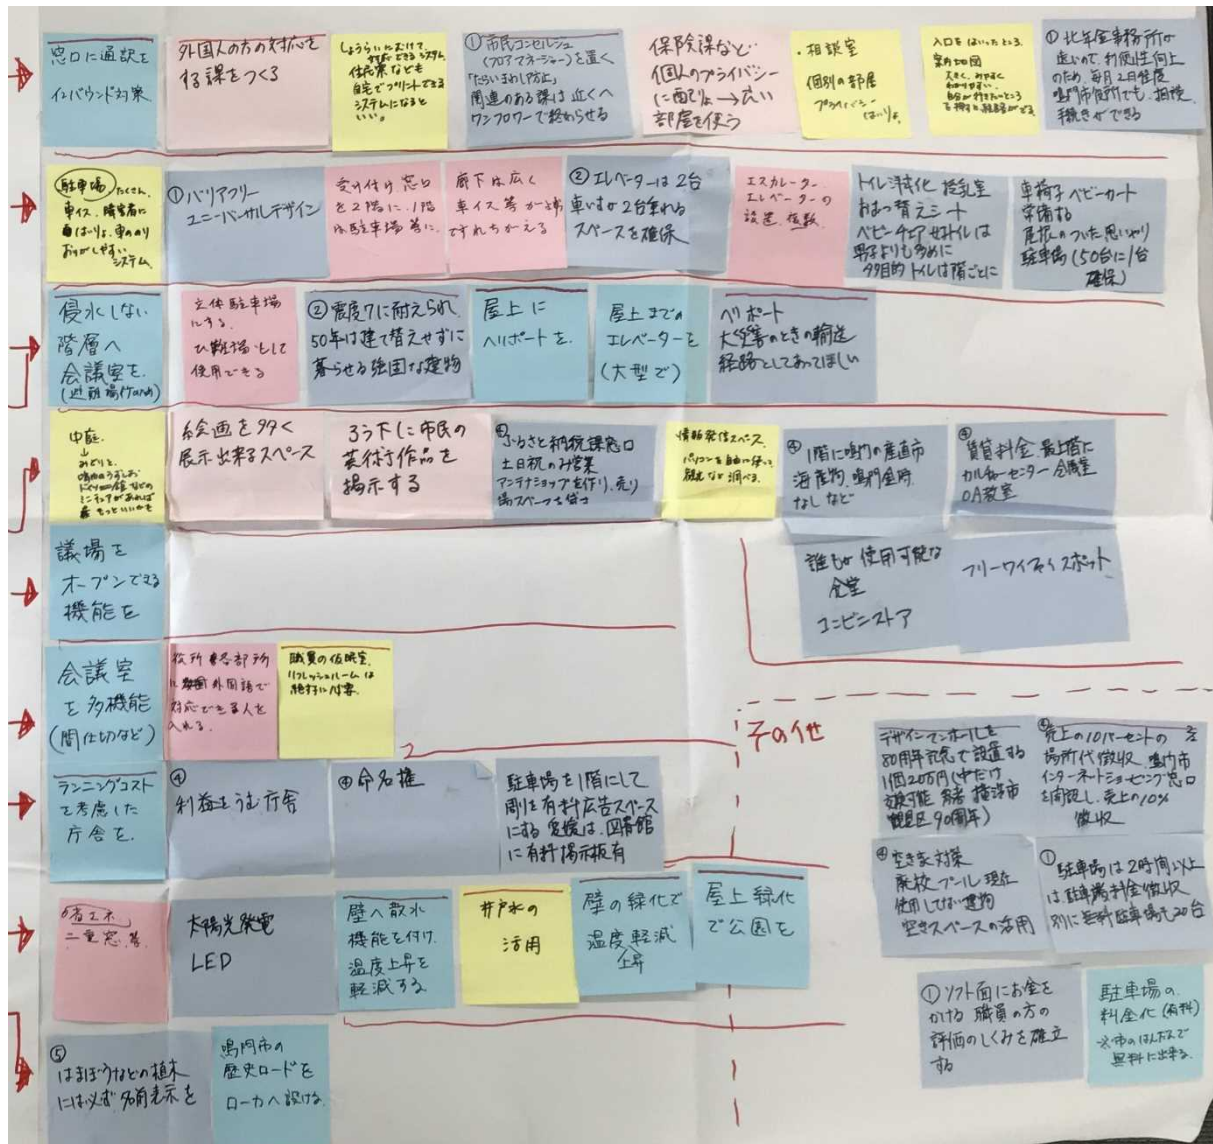 窓口に通訳を
インバウンド対策
外国人の方の対応を
する課をつくる
しょうらいにむけて
住民票なども
自宅でプリントできる
システムになると
いい。
①市民コンセルジュ
(フロアマネージャー)を置く
「たらいまわし防止」
関連のある課は近くへ
ワンフロアーで終わらせる
保険課など
個人のプライバシー
に配りょ→広い
部屋を使う
・相談室
個別の部屋
プライバシー
はいりょ
入口をはいったところ
案内地図
大きく、みやすく
わかりやすい。
自分が行きたいところ
を押すと経路がでる
①北年金事務所が
遠いので、利便性向上
のため、毎月2日程度
鳴門市役所でも、相談、
手続きができる
駐車場 たくさん
車イス、障害者に
はいりょ、車ののり
おりがしやすい
システム
①バリアフリー
ユニバーサルデザイン
受け付け窓口
を2階に、1階
は駐車場等に
廊下は広く
車イス等が
すれちがえる
②エレベーターは2台
車いすが2台乗れる
スペースを確保
エスカレーター、
エレベーターの
設置、複数
トイレ浄化 授乳室
おむつ替えシート
ベビーチェア 女子トイレは
男子よりも多めに
多目的トイレは階ごとに
車椅子 ベビーカート
常備する
屋根のついた思いやり
駐車場(50台に1台
確保)
侵水しない
階層へ
会議室を
(避難場所のため)
立体駐車場
にする。
ひ難場として
使用できる
②震度7に耐えられ、
50年は建て替えせずに
暮らせる強固な建物
屋上に
ヘリポートを
屋上までの
エレベーターを
(大型で)
ヘリポート
大災等のときの輸送
経路としてあってほしい
中庭
みどりと、
鳴門のうずしお
ドイツ館などの
ミニチュアがあれば
もっといいかも
絵画を多く
展示出来るスペース
ろう下に市民の
芸術作品を
掲示する
④ふるさと納税課窓口
土日祝のみ営業
アンテナショップを作り、売り
場スペースを貸す
情報発信スペース
パソコンを自由に使って
観光など調べる
④1階に鳴門の産直市
海産物、鳴門金時、
なしなど
④賃貸料金 最上階に
カルチャーセンター 会議室
OA教室
議場を
オープンできる
機能を
誰もが使用可能な
食堂
コンビニストア
フリーワイファイスポット
会議室
を多機能
(間仕切など)
役所各部所
に外国語で
対応できる人を
入れる。
職員の仮眠室、
リフレッシュルームは
絶対に必要
その他
デザインマンホールを
80周年記念で設置する
1個20万円(中だけ
交換可能 参考 横浜市
鶴見区90周年)
④売上の10パーセントの
場所代徴収 鳴門市
インターネットショッピング窓口
を開設し、売上の10%
徴収
ランニングコスト
を考慮した
庁舎を
④
利益をうむ庁舎
④命名権
駐車場を1階にして
周りを有料広告スペース
にする 愛媛は、図書館
に有料掲示板有
④空きま対策
廃校プール 現在
使用してない建物
空きスペースの活用
①駐車場は2時間以上
は駐車場料金徴収
別に無料駐車場も20台
省エネ、
二重窓、等
太陽光発電
LED
壁へ散水
機能を付け
温度上昇を
軽減する
井戸水の
活用
壁の緑化で
温度軽減
上昇
屋上緑化
で公園を
①ソフト面にお金を
かける 職員の方の
評価のしくみを確立
する
駐車場の
料金化(有料)
※市のはんだんで
無料に出来る。
⑤
はまぼうなどの植木
には必ず名前表示を
鳴門市の
歴史ロードを
ローカへ設ける